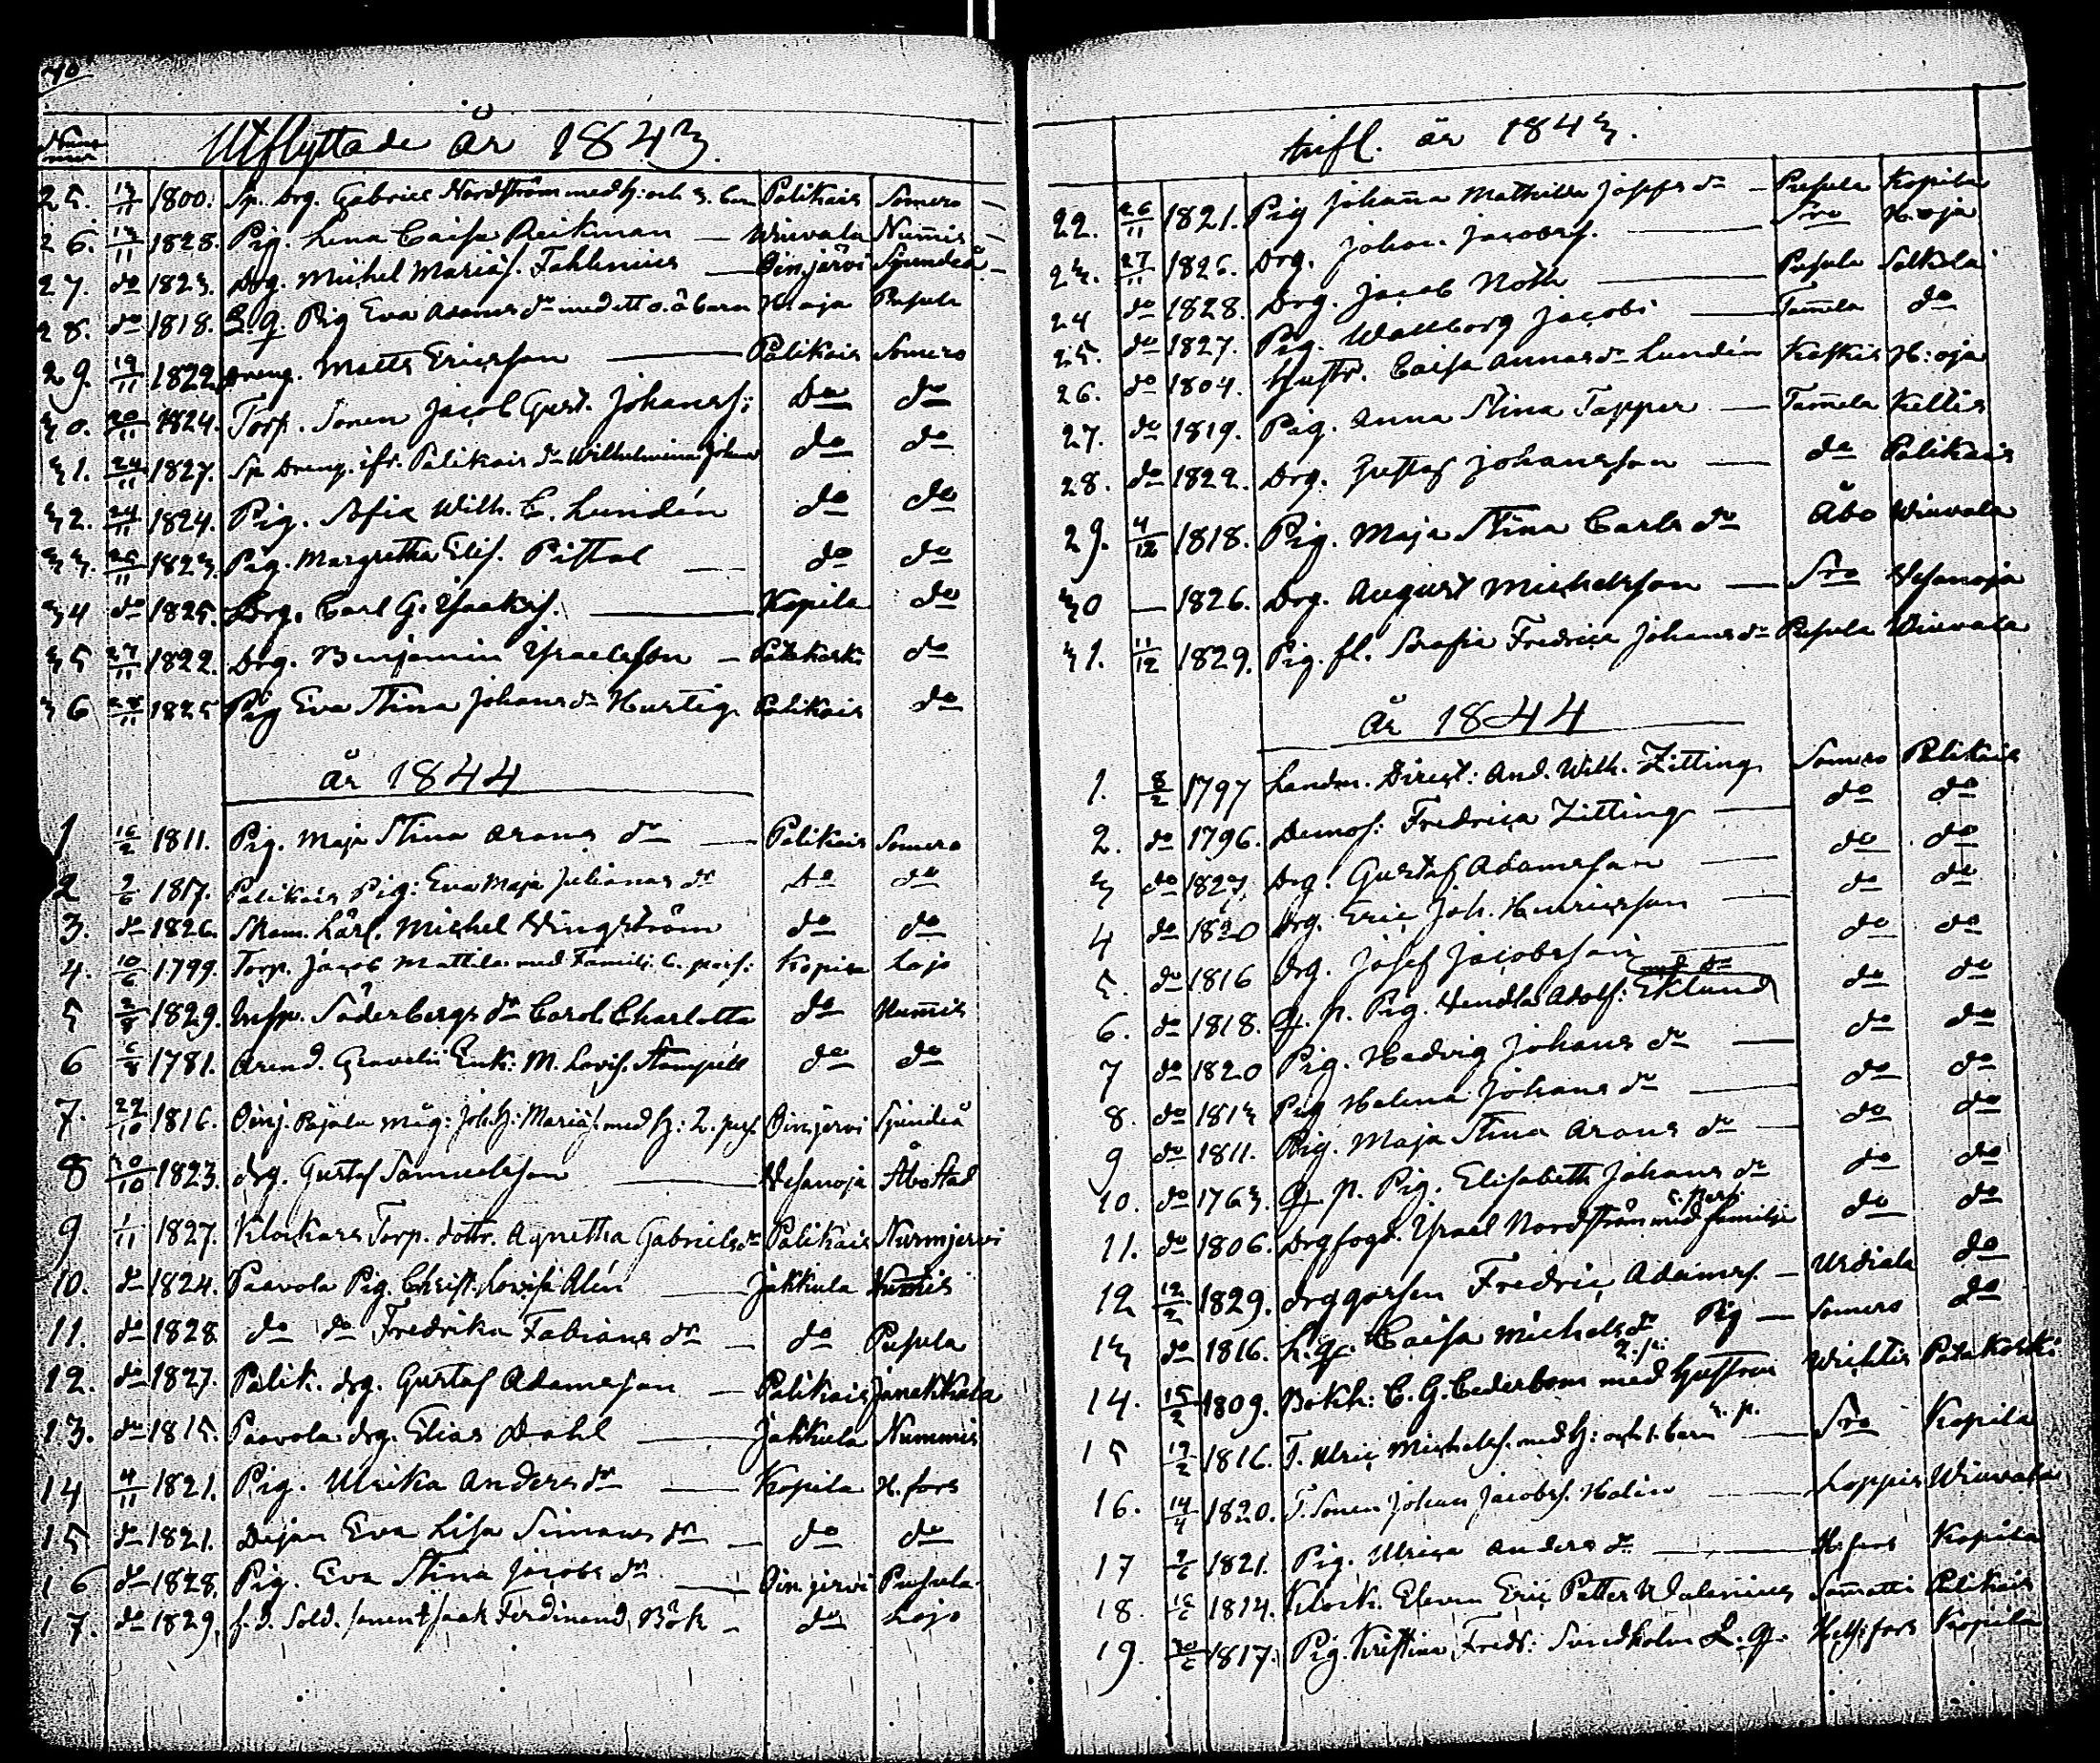 40
Utflyttade År 1843.
25. 13/11 1800. Sp. Drg. Gabriel Nordström med h: och 3. barn Palikais Somero
26. 13/11 1828. Pig. Lena Caisa Reikman — Wiuvala Nummis
27. do 1823. Drg. Michel Mariæs. Fahlenius — Oinjärvi Spundeå
28. do 1818. L. q. Pig Eva Adams dr med ett o. ä barn H:oja Pusula
29. 19/11 1822. Dreng. Matts Ericsson — Palikais Somero
30. 20/11 1824. Torp. Sonen Jacob Gust. Johanss: Do do
31. 24/11 1827. Sp Dreng. ifr. Palikais dr Wilhelmina Johans do do
32. 24/11 1824. Pig. Sofia Wilh. C. Lundén do do
33. 25/11 1823. Pig. Margretha Elis. Pistol — do do
34 do 1825. Drg. Carl G. Isaakss. — Kopila do
35 27/11 1822. Drg. Benjamin Israelsson — Patakoski do
36 28/11 1825 Pig Eva Stina Johans dr Hurtig. Palikais do
år 1844
1 16/2 1811. Pig. Maja Stina Arons dr — Palikais Somero
2 9/6 1817. Palikais Pig: Eva Maja Julianas dr Do do
3. do 1826. Skom. Lärl. Michel Wingström do do
4. 10/6 1799. Torp. Jacob Mattila med Familj. 6. pers: Kopila Lojo
5 2/8 1829. Insp. Söderbergs dr Carol. Charlotta do Nummis
6 6/8 1781. Arend. Gravelii Enk: M. Lovis. Stampell do do
7. 29/10 1816. Oinj. Pajala Måg: Joh. H: Mariæs. med h: 2. pers. Oinjervi Spundeå
8 30/10 1823. drg. Gustaf Samuelsson — Hesanoja Åbo Stad
9 1/11 1827. Klockars Torp. dottr. Agnetha Gabriels dr Palikais Nurmjervi
10. do 1824. Paavola Pig. Christ. Lovisa Alén — Jakkula Nummis
11. do 1828. do do Fredrika Fabians dr — do Pusula
12. do 1827. Palik. drg. Gustaf Adamsson — Palikais Janakkala
13. do 1815. Paavola drg. Elias Dahl — Jakkula Nummis
14 4/11 1821. Pig. Ulrika Anders dr — Kopila H. fors
15 do 1821. Dejan Eva Lisa Simons dr — do do
16 do 1828. Pig. Eva Stina Jacobs dr — Oinjervi Pusula
17. do 1829. f. d. Sold. sonen Isaak Ferdinand Bök — do Lojo
Infl. år 1843.
22. 26/11 1821. Pig Johanna Mathilda Josefs dr — Pusula Kopila
23. 27/11 1826. Drg. Johan Jacobss. — Sro H:oja
24 do 1828. Drg. Jacob Nöth — Pusula Salkola
25. do 1827. Pig. Wallborg Jacobi — Tammela do
26. do 1804. Hustr. Caisa Annas dr Lundén Koskis H:oja
27. do 1819. Pig. Anna Stina Tapper — Tammela Keltis
28. do 1822. Drg. Gustaf Johansson — do Palikais
29. 4/12 1818. Pig. Maja Stina Carls dr Åbo Wiuvala
30 — 1826. Drg. August Michelsson — Sro Hesanoja
31. 11/12 1829. Pig. fl. Serafia Fredrica Johans dr Pusula Wiuvala
År 1844
1. 8/2 1797 Landm. Direct: And. Wilh. Zitting Somero Palikais
2. do 1796. Demos: Fredrica Zitting — do do
3 do 1823. Drg. Gustaf Adamsson — do do
4 do 1820 Drg. Eric Joh. Henricsson — do do
5. do 1816 Drg. Josef Jacobsson — do do
6. do 1818. q. p. Pig. Hendla Adolf: Eklund do do
7 do 1820 Pig. Hedvig Johans dr — do do
8. do 1813 Pig Helena Johans dr — do do
9 do 1811. Pig. Maja Stina Arons dr — do do
10. do 1763. q. p. Pig. Elisabeth Johans dr do do
11. do 1806. Drgfogd. Israel Nordström med familje 5. pers. do do
12 12/2 1829. drggossen Fredric Adamss. — Urdiala do
13 do 1816. L. q. Caisa Michels dr Pig — Somero do
14. 15/2 1809. Bokh: C. G. Cederbom med hustrun 2. p. Wichtis Patakoski
15 19/2 1816. T. Ulric Michelss. med h: och 1. barn 3. p. Sro Kopila
16. 14/4 1820. T. Sonen Johan Jacobss. Helin — Loppis Wiuvala
17 9/6 1821. Pig. Ulrica Anders dr — H:fors Kopila
18. 1814. Klock. Eleven Eric Petter Walenius Sammatti Palikais
19. 30/6 1817. Pig. Kristina Freds: Sundholm L. q. Hels:fors Kopila